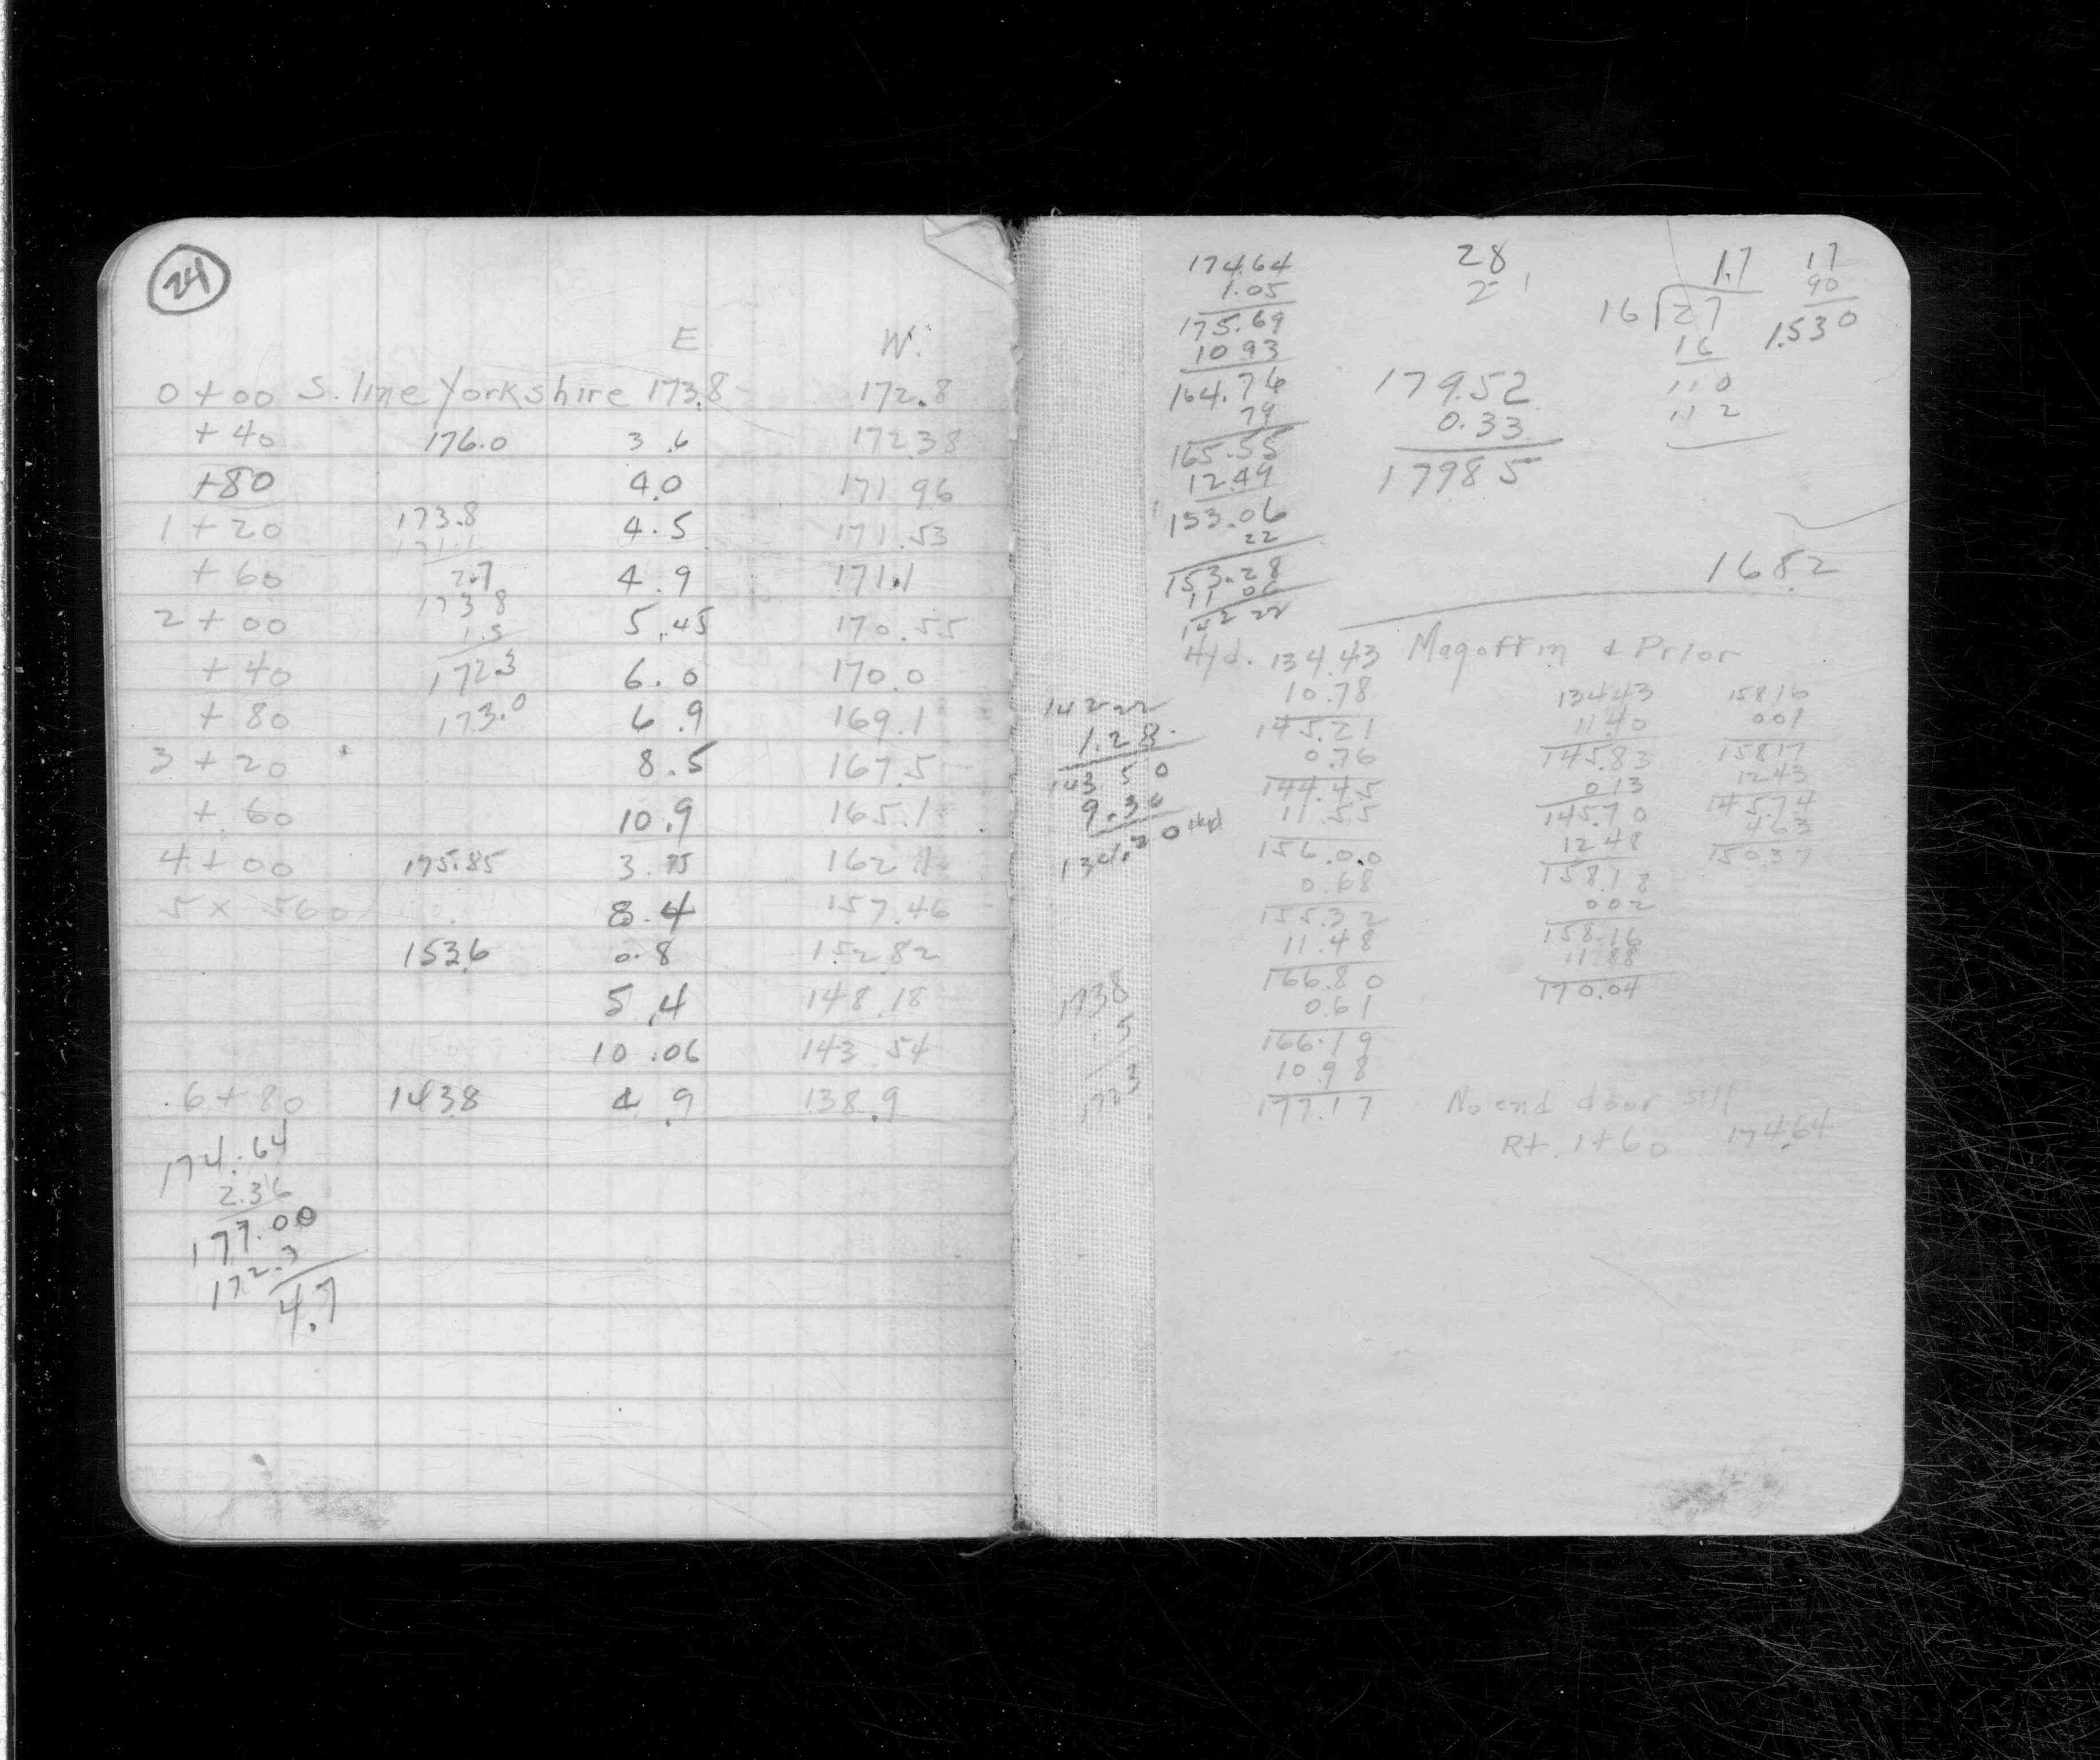 24
E W.
0+00 S. line Yorkshire 173.8 172.8
+40 176.0 3.6 172.38
+80 4.0 171.96
1+20 173.8 4.5 171.53
171.1
+60 2.7 4.9 171.1
173.8
2+00 1.5 5.45 170.55
+40 172.3 6.0 170.0
+80 173.0 6.9 169.1
3+20 8.5 167.5
+60 10.9 165.1
4+00 175.85 3.75 162.1
5 x 560 8.4 157.46
153.6 0.8 152.82
5.4 148.18
10.06 143.54
6+80 143.8 4.9 138.9
174.64
2.36
177.00
172.3
4.7
174.64
1.05
175.69
10.93
164.76
79
165.55
12.49
153.06
22
153.28
11 06
142 22
28
2
179.52
0.33
179.85
1.7
16 27
16
110
112
17
90
1.530
168.2
Hyd. 134.43 Magoffin & Prior
10.78
145.21
0.76
144.45
11.55
156.00
0.68
155.32
11.48
166.80
0.61
166.19
10.98
177.17
134.43
11.40
145.83
0.13
145.70
12.48
158.18
0.02
158.16
11.88
170.04
158.16
0.01
158.17
12.43
145.74
4.63
150.37
142.22
1.28
143 50
9.30
134.20 Hyd
173.8
1.5
172.3
No end door sill
Rt. 1+60 174.64